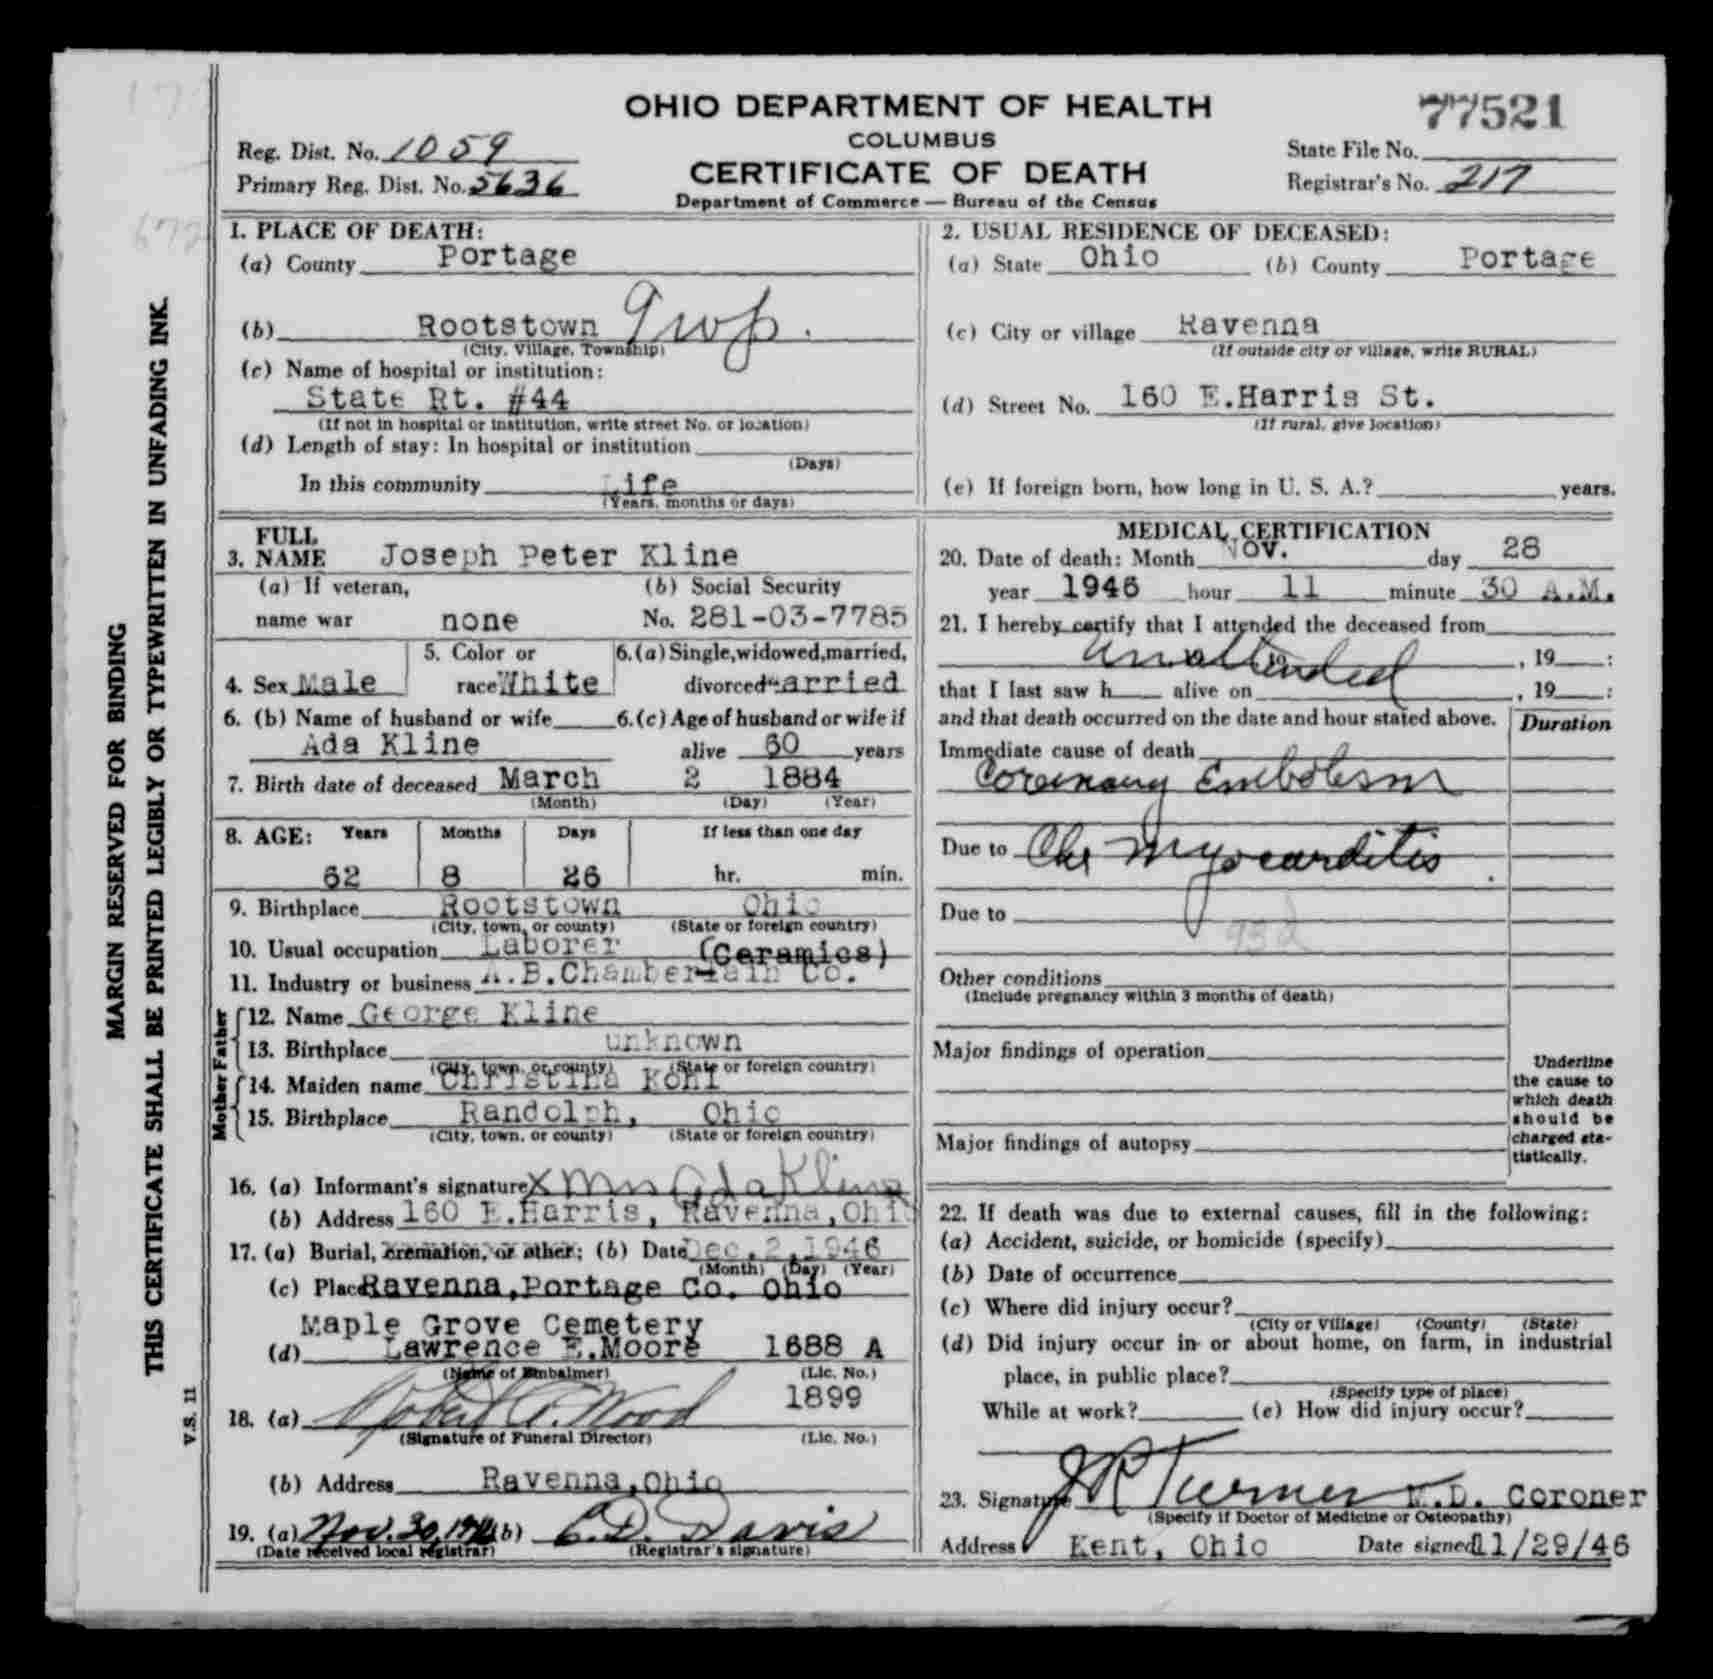 OHIO DEPARTMENT OF HEALTH
COLUMBUS
CERTIFICATE OF DEATH
Department of Commerce — Bureau of the Census
77521
Reg. Dist. No. 1059
Primary Reg. Dist. No. 5636
State File No.
Registrar's No. 217
MARGIN RESERVED FOR BINDING
THIS CERTIFICATE SHALL BE PRINTED LEGIBLY OR TYPEWRITTEN IN UNFADING INK.
V.S. 11
1. PLACE OF DEATH:
(a) County Portage
(b) Rootstown Twp.
(City, Village, Township)
(c) Name of hospital or institution:
State Rt. #44
(If not in hospital or institution, write street No. or location)
(d) Length of stay: In hospital or institution
(Days)
In this community Life
(Years, months or days)
2. USUAL RESIDENCE OF DECEASED:
(a) State Ohio (b) County Portage
(c) City or village Ravenna
(If outside city or village, write RURAL)
(d) Street No. 160 E.Harris St.
(If rural, give location)
(e) If foreign born, how long in U. S. A.? years.
FULL
3. NAME Joseph Peter Kline
(a) If veteran, (b) Social Security
name war none No. 281-03-7785
4. Sex Male
5. Color or
race White
6.(a) Single, widowed, married,
divorced Married
6. (b) Name of husband or wife 6.(c) Age of husband or wife if
Ada Kline alive 60 years
7. Birth date of deceased March 2 1884
(Month) (Day) (Year)
8. AGE: Years Months Days If less than one day
62 8 26 hr. min.
9. Birthplace Rootstown Ohio
(City, town, or county) (State or foreign country)
10. Usual occupation Laborer (Ceramics)
11. Industry or business A.B.Chamberlain Co.
Father
12. Name George Kline
13. Birthplace unknown
(City, town, or county) (State or foreign country)
Mother
14. Maiden name Christina Kohl
15. Birthplace Randolph, Ohio
(City, town, or county) (State or foreign country)
16. (a) Informant's signature X Mrs Ada Kline
(b) Address 160 E.Harris, Ravenna,Ohio
17. (a) Burial, cremation, or other; (b) Date Dec.2,1946
(Month) (Day) (Year)
(c) Place Ravenna,Portage Co. Ohio
Maple Grove Cemetery
(d) Lawrence E.Moore 1688 A
(Name of Embalmer) (Lic. No.)
1899
18. (a) Robert A. Wood
(Signature of Funeral Director) (Lic. No.)
(b) Address Ravenna,Ohio
19. (a) Nov. 30, 1946 (b) C.D. Davis
(Date received local registrar) (Registrar's signature)
MEDICAL CERTIFICATION
20. Date of death: Month Nov. day 28
year 1946 hour 11 minute 30 A.M.
21. I hereby certify that I attended the deceased from
Unattended 19 , 19 :
that I last saw h alive on , 19 :
and that death occurred on the date and hour stated above.
Duration
Immediate cause of death
Coronary Embolism
Due to Chr Myocarditis
Due to
93d
Other conditions
(Include pregnancy within 3 months of death)
Major findings of operation
Major findings of autopsy
Underline
the cause to
which death
should be
charged sta-
tistically.
22. If death was due to external causes, fill in the following:
(a) Accident, suicide, or homicide (specify)
(b) Date of occurrence
(c) Where did injury occur?
(City or Village) (County) (State)
(d) Did injury occur in or about home, on farm, in industrial
place, in public place?
(Specify type of place)
While at work? (e) How did injury occur?
23. Signature J R Turner M.D. Coroner
(Specify if Doctor of Medicine or Osteopathy)
Address Kent, Ohio Date signed 11/29/46